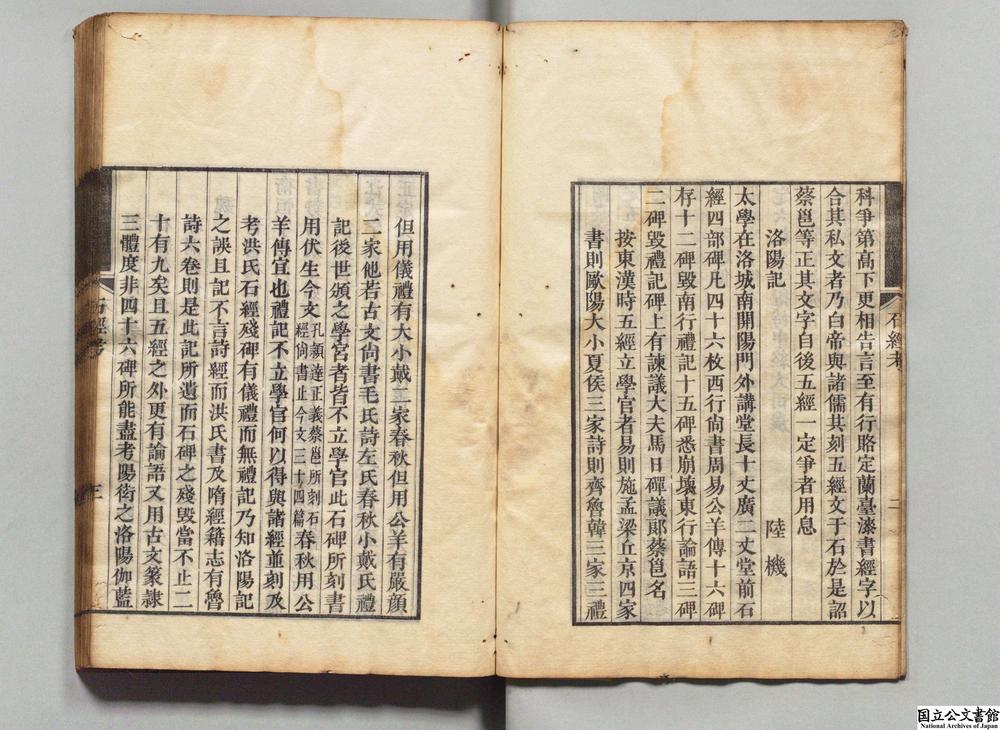 科爭第高下更相告言至有行賂定蘭臺漆書經字以
合其私文者乃白帝與諸儒共刻五經文于石於是詔
蔡邕等正其文字自後五經一定爭者用息
洛陽記 陸機
太學在洛城南開陽門外講堂長十丈廣二丈堂前石
經四部碑凡四十六枚西行尙書周易公羊傳十六碑
存十二碑毀南行禮記十五碑悉崩壞東行論語三碑
二碑毀禮記碑上有諫議大夫馬日磾議郞蔡邕名
按東漢時五經立學官者易則施孟梁丘京四家
書則歐陽大小夏侯三家詩則齊魯韓三家三禮
石經考
二
但用儀禮有大小戴二家春秋但用公羊有嚴顏
二家他若古文尙書毛氏詩左氏春秋小戴氏禮
記後世頒之學宮者皆不立學官此石碑所刻書
用伏生今文孔穎達正義蔡邕所刻石經尙書止今文三十四篇春秋用公
羊傳宜也禮記不立學官何以得與諸經並刻及
考洪氏石經殘碑有儀禮而無禮記乃知洛陽記
之誤且記不言詩經而洪氏書及隋經籍志有魯
詩六卷則是此記所遺而石碑之殘毀當不止二
十有九矣且五經之外更有論語又用古文篆隸
三體度非四十六碑所能盡考陽衒之洛陽伽藍
石經考
三
国立公文書館
National Archives of Japan